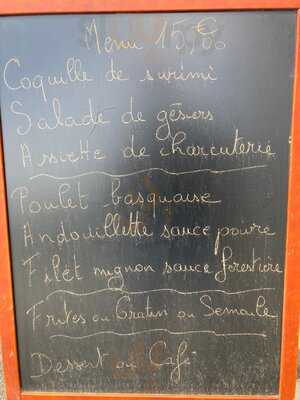 Menu 15,50€
Coquille de surimi
Salade de gésiers
Assiette de charcuterie
Poulet basquaise
Andouillette sauce poivre
Filet mignon sauce forestière
Frites ou Gratin ou Semoule
Dessert ou Café